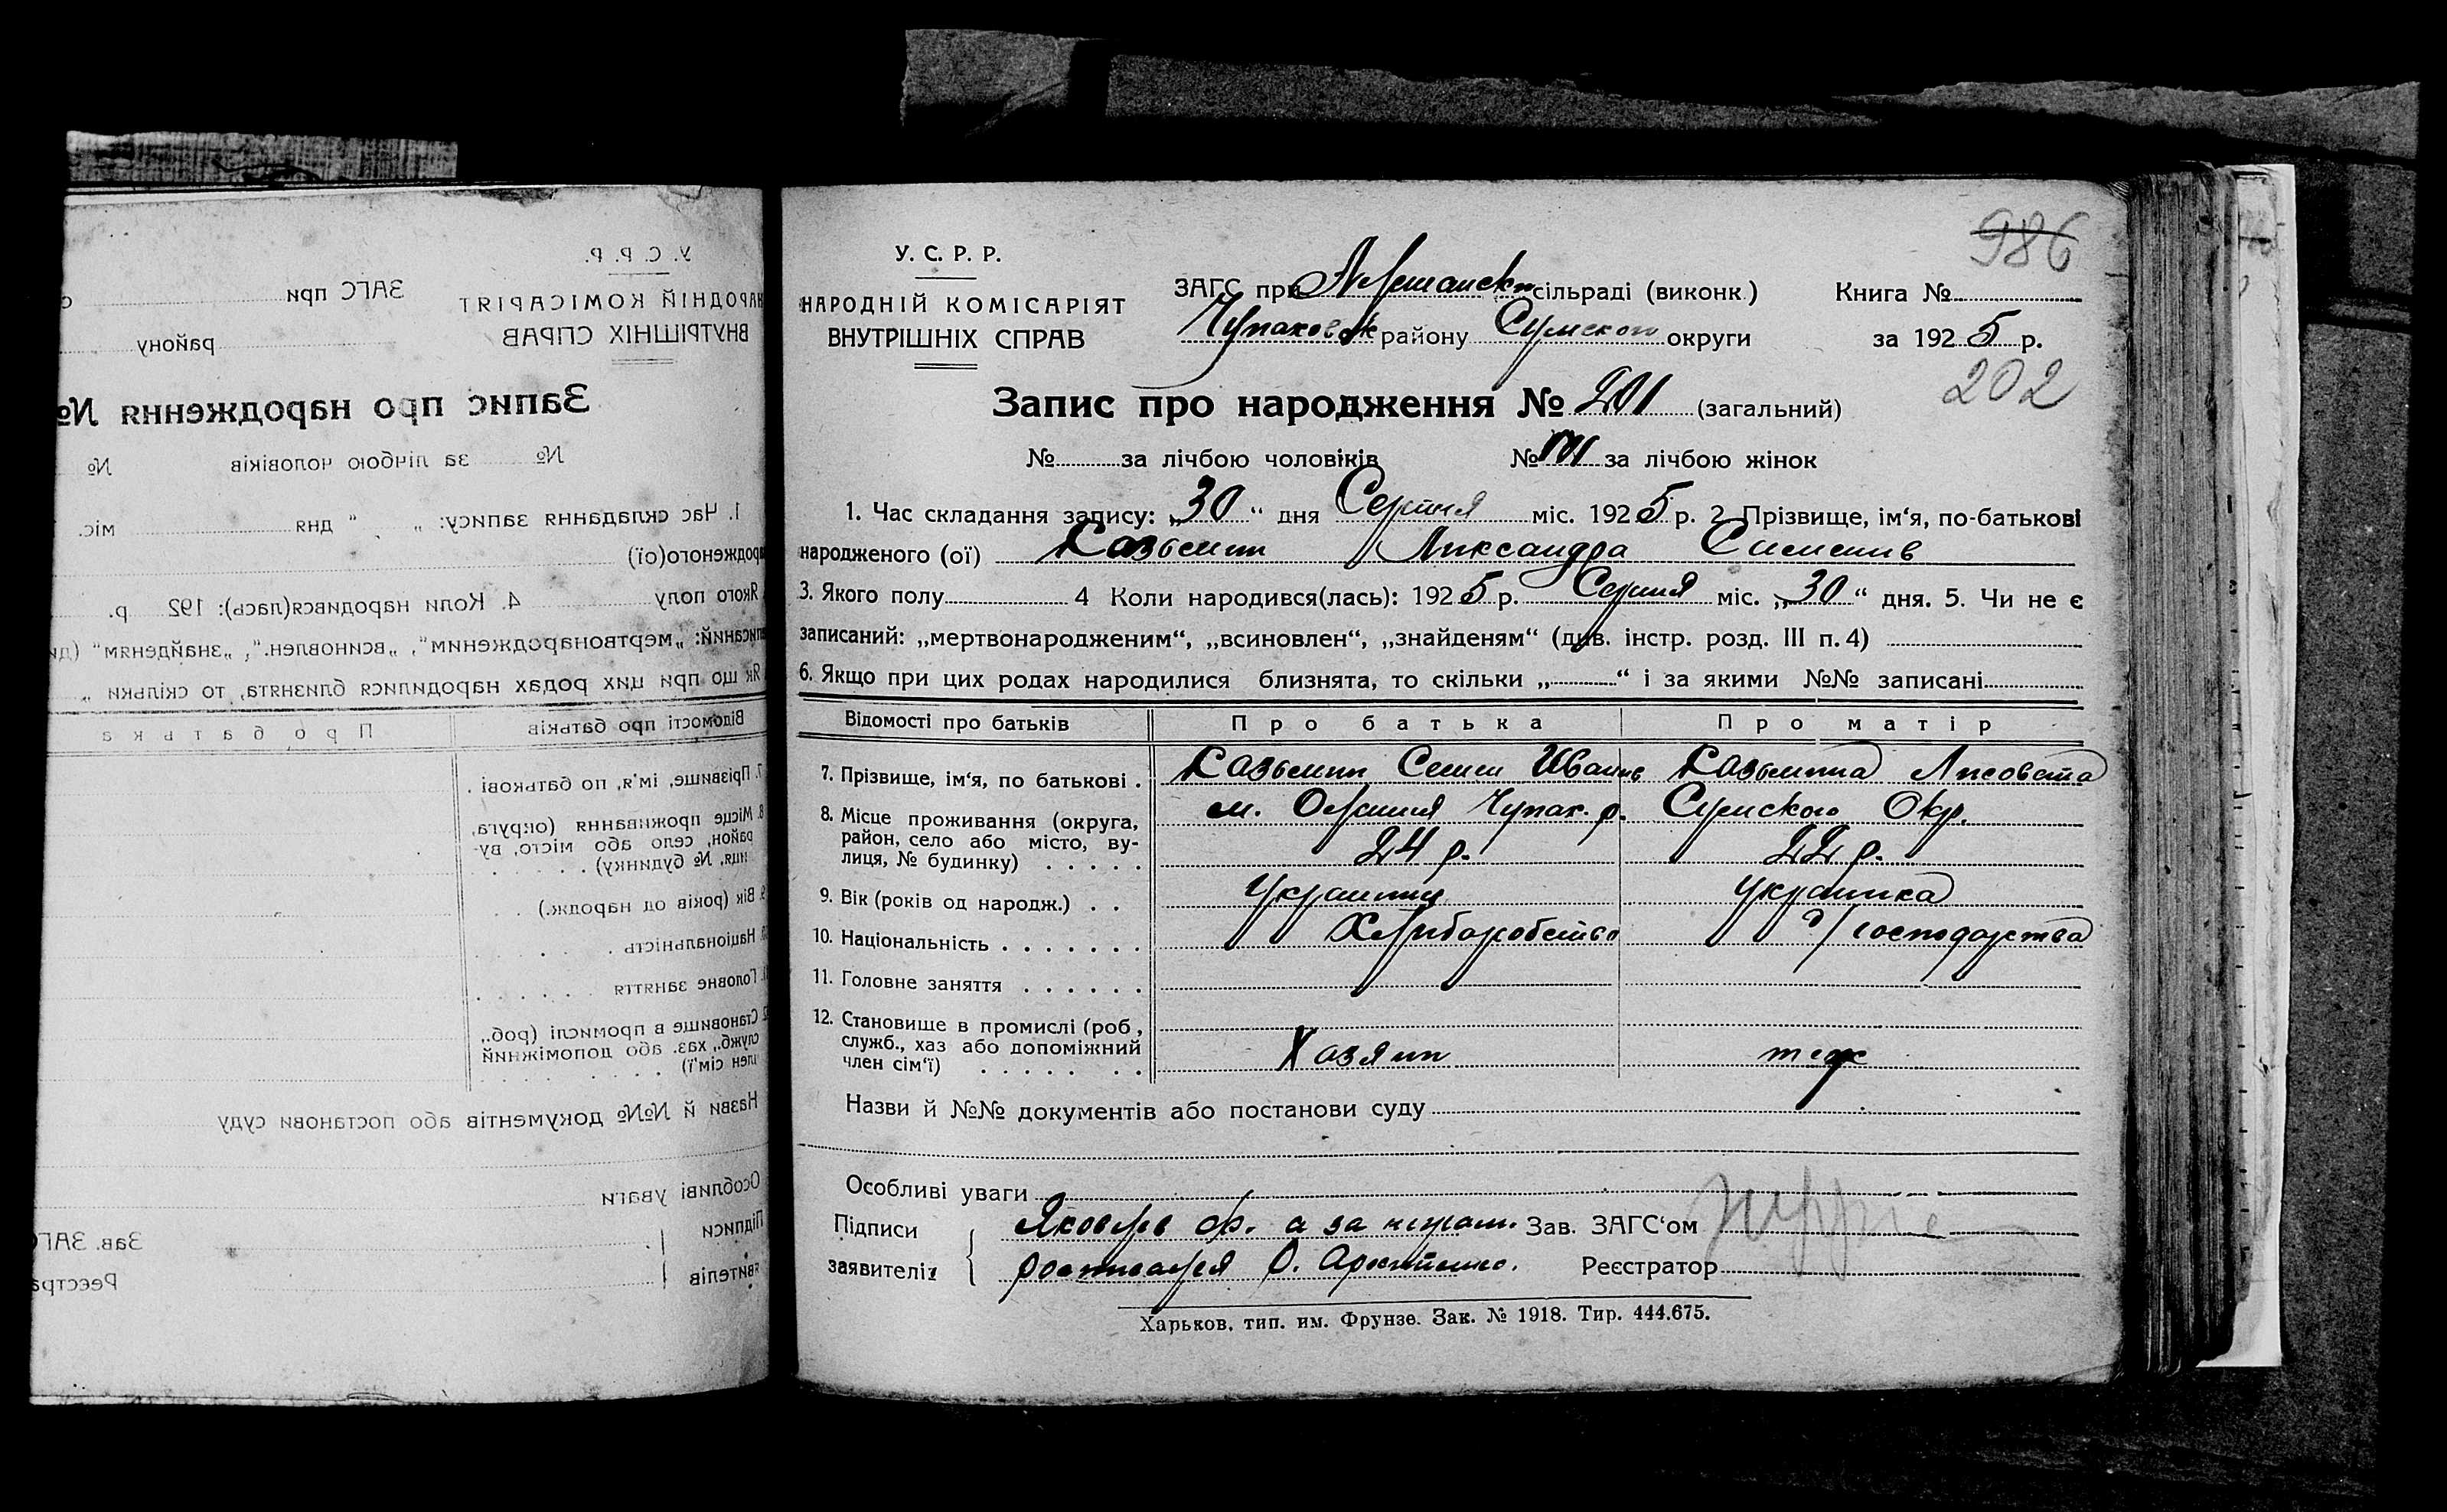 986
У. С. Р. Р.
НАРОДНІЙ КОМІСАРІЯТ
ВНУТРІШНІХ СПРАВ
ЗАГС при сільраді (виконк.)
району Сумского округи
Книга №
за 1925 р.
202
Запис про народження № 201 (загальний)
№ за лічбою чоловіків № 101 за лічбою жінок
1. Час складання запису: „30“ дня Серпня міс. 1925 р. 2. Прізвище, ім‘я, по-батькові
народженого (ої) Казьмин Александра
3. Якого полу 4 Коли народився(лась): 1925 р. Серпня міс. „30“ дня. 5. Чи не є
записаний: „мертвонародженим“, „всиновлен“, „знайденям“ (див. інстр. розд. III п. 4)
6. Якщо при цих родах народилися близнята, то скільки „ “ і за якими №№ записані
Відомості про батьків Про батька Про матір
7. Прізвище, ім‘я, по батькові . Казьмин Семен Иванів Казьмина Лисовета
8. Місце проживання (округа, м. Олешня Чупах. р. Сумского Окр.
район, село або місто, ву-
лиця, № будинку) . . . . . 24 р. 22 р.
9. Вік (років од народж.) . . Українец Українка
10. Національність . . . . . . . Хліборобство господарства
11. Головне заняття . . . . . .
12. Становище в промислі (роб,
служб., хаз або допоміжний
член сім‘ї) . . . . . . . Хазяин теж
Назви й №№ документів або постанови суду
Особливі уваги
Підписи Яковлів Ф. а за неграм. Зав. ЗАГС‘ом
заявителів О. Зав. Реєстратор
Харьков, тип. им. Фрунзе. Зак. № 1918. Тир. 444.675.